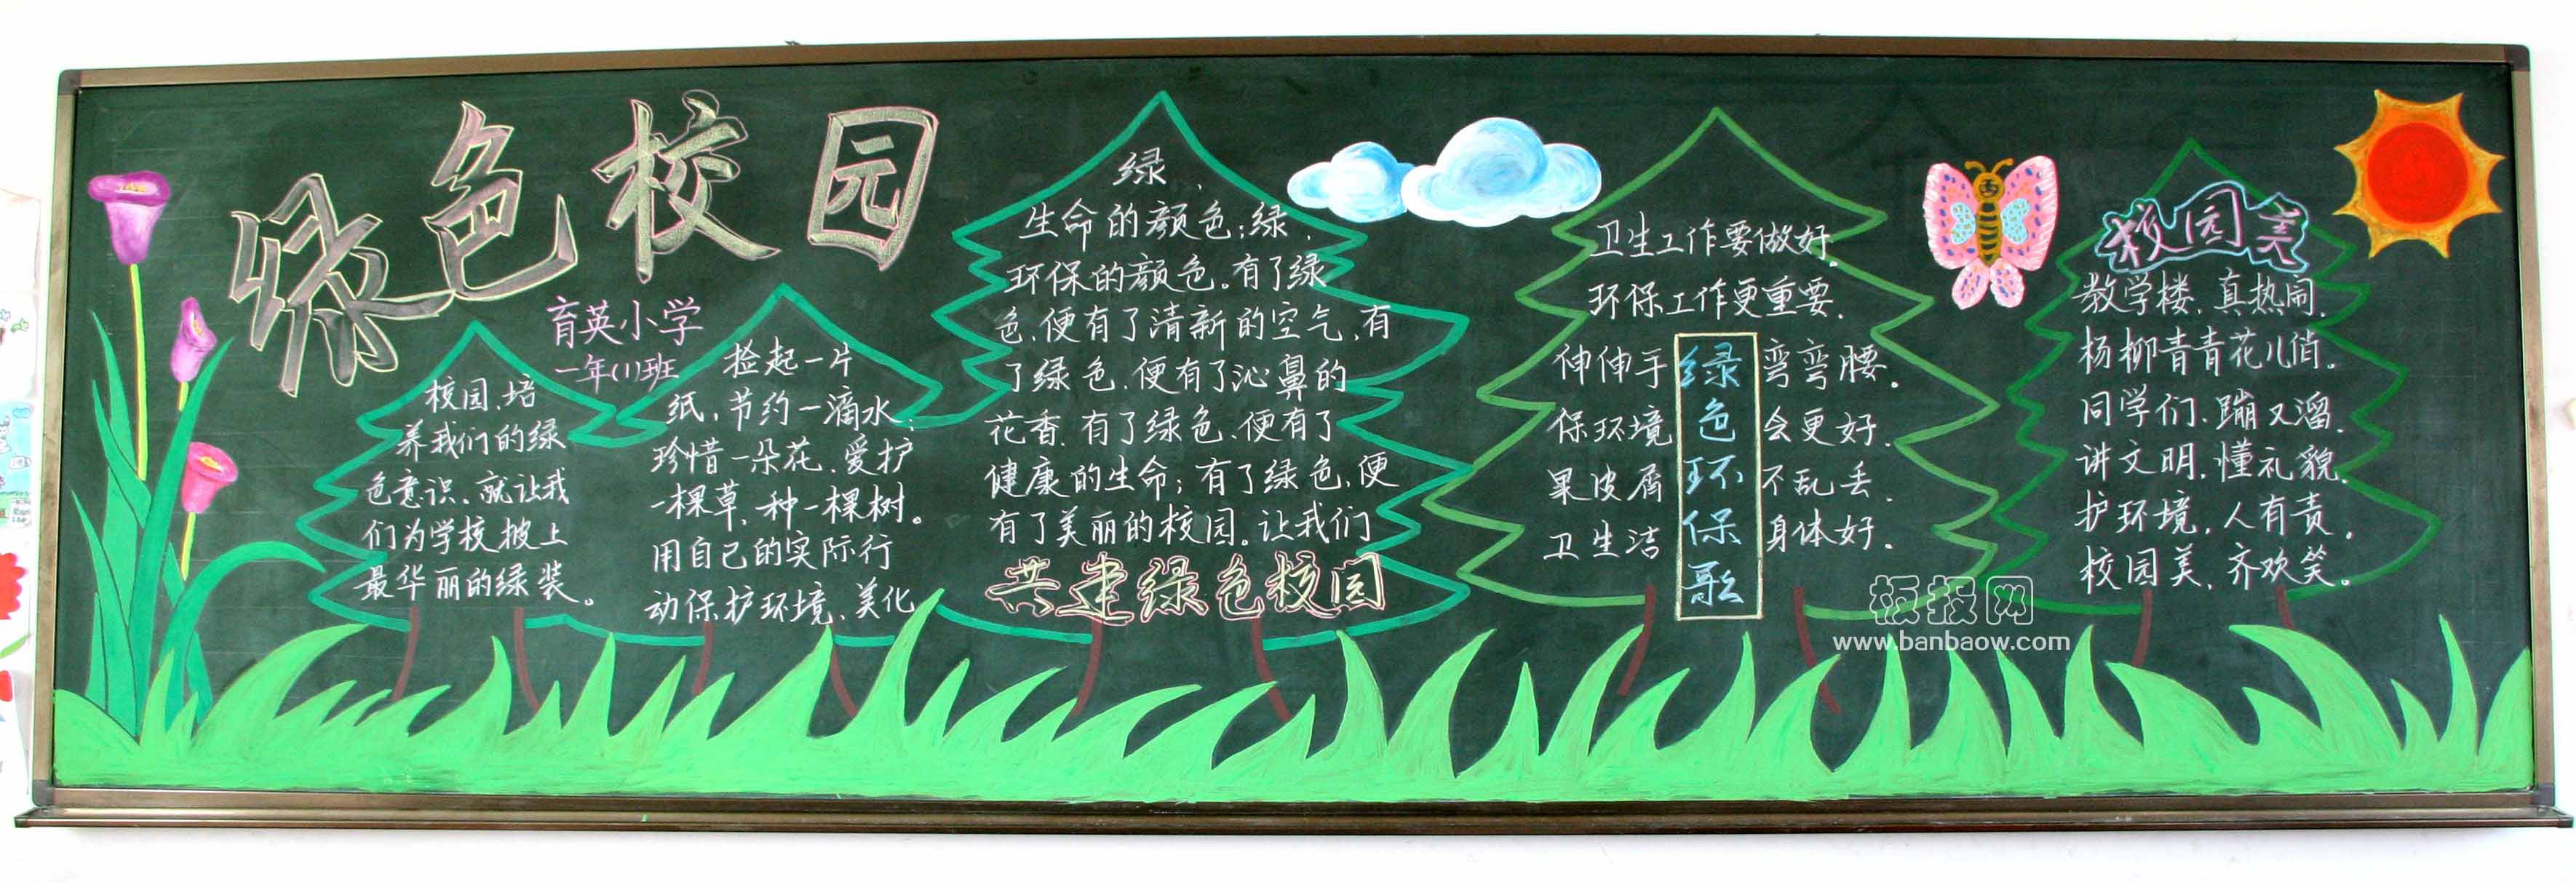 绿色校园
育英小学
一年(1)班
捡起一片
纸,节约一滴水;
珍惜一朵花、爱护
一棵草、种一棵树。
用自己的实际行
动保护环境、美化
校园、培
养我们的绿
色意识。就让我
们为学校披上
最华丽的绿装。
绿、
生命的颜色;绿、
环保的颜色。有了绿
色、便有了清新的空气、有
了绿色、便有了沁鼻的
花香、有了绿色、便有了
健康的生命;有了绿色、便
有了美丽的校园。让我们
共建绿色校园
绿色环保歌
卫生工作要做好、
环保工作更重要、
伸伸手弯弯腰。
保环境会更好、
果皮屑不乱丢、
卫生洁身体好。
校园美
教学楼、真热闹、
杨柳青青花儿俏。
同学们、蹦又溜、
讲文明、懂礼貌、
护环境,人有责。
校园美、齐欢笑。
板报网
www.banbaow.com